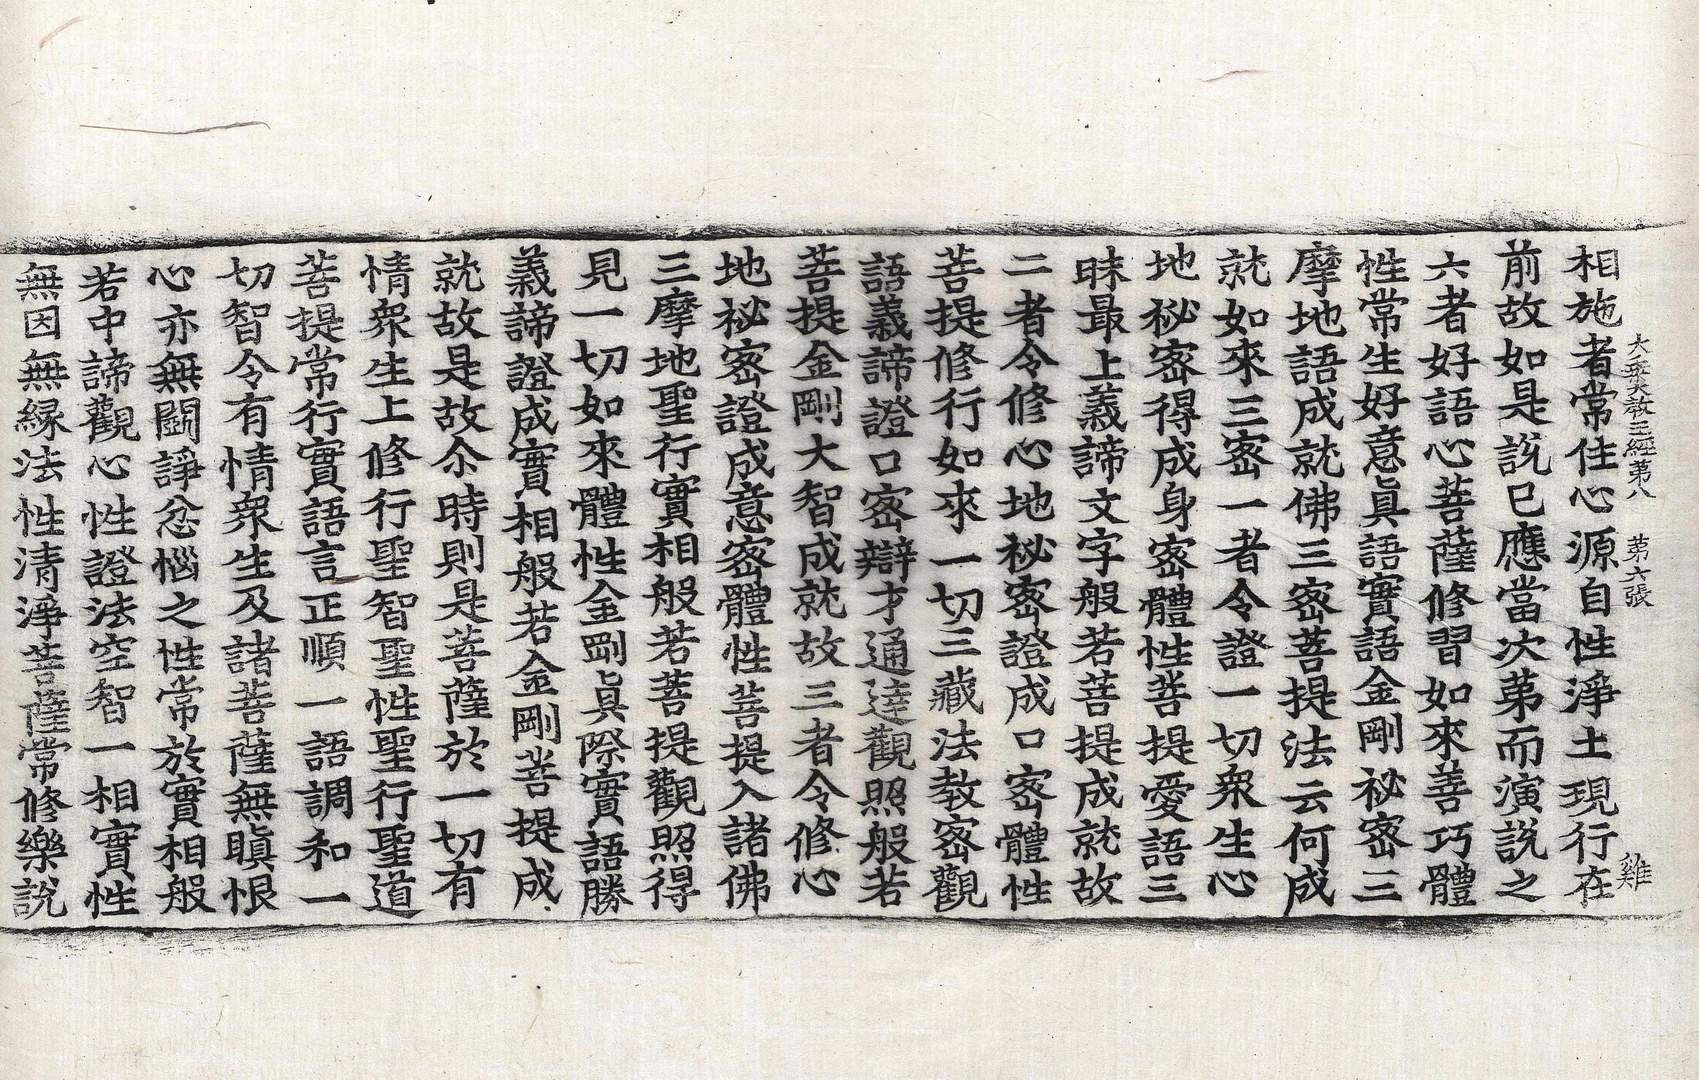 大乘大教王經第八 第六張 雞
相施者常住心源自性淨土現行在
前故如是說已應當次第而演說之
六者好語心菩薩修習如來善巧體
性常生好意眞語實語金剛祕密三
摩地語成就佛三密菩提法云何成
就如來三密一者令證一切衆生心
地祕密得成身密體性菩提愛語三
昧最上義諦文字般若菩提成就故
二者令修心地祕密證成口密體性
菩提修行如來一切三藏法教密觀
語義諦證口密辯才通達觀照般若
菩提金剛大智成就故三者令修心
地祕密證成意密體性菩提入諸佛
三摩地聖行實相般若菩提觀照得
見一切如來體性金剛眞際實語勝
義諦證成實相般若金剛菩提成
就故是故尒時則是菩薩於一切有
情衆生上修行聖智聖性聖行聖道
菩提常行實語言正順一語調和一
切智令有情衆生及諸菩薩無瞋恨
心亦無鬪諍忿惱之性常放實相般
若中諦觀心性證法空智一相實性
無因無縁法性清淨菩薩常修樂說